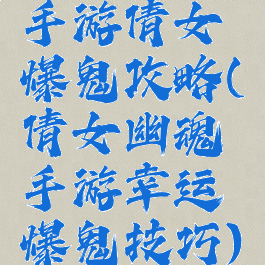 手游倩女
爆鬼攻略(
倩女幽魂
手游幸运
爆鬼技巧)